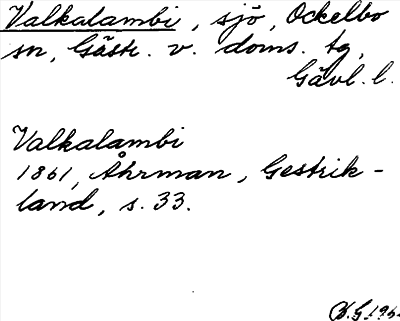 Valkalambi, sjö, Ockelbo
sn, Gästr. v. doms. tg,
Gävl. l.
Valkalambi
1861, Åhrman, Gestrik-
land, s. 33.